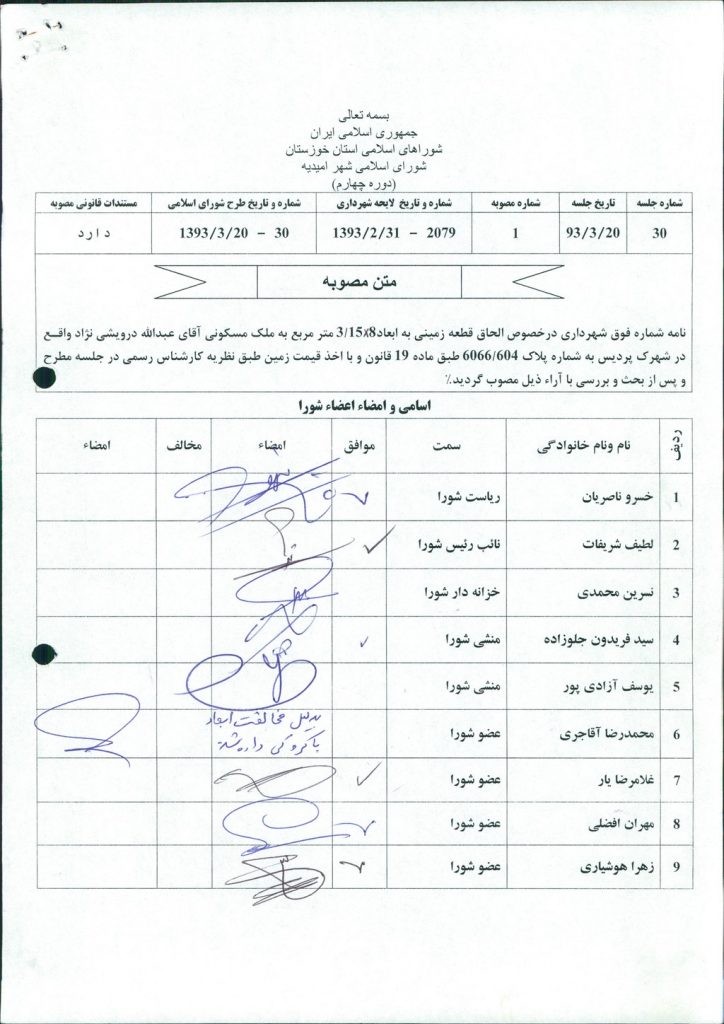 بسمه تعالی
جمهوری اسلامی ایران
شوراهای اسلامی استان خوزستان
شورای اسلامی شهر امیدیه
(دوره چهارم)
شماره جلسه تاریخ جلسه شماره مصوبه شماره و تاریخ لایحه شهرداری شماره و تاریخ طرح شورای اسلامی مستندات قانونی مصوبه
30 93/3/20 1 2079 - 1393/2/31 30 - 1393/3/20 دارد
متن مصوبه
نامه شماره فوق شهرداری درخصوص الحاق قطعه زمینی به ابعاد8×3/15 متر مربع به ملک مسکونی آقای عبدالله درویشی نژاد واقع
در شهرک پردیس به شماره پلاک 6066/604 طبق ماده 19 قانون و با اخذ قیمت زمین طبق نظریه کارشناس رسمی در جلسه مطرح
و پس از بحث و بررسی با آراء ذیل مصوب گردید٪
اسامی و امضاء اعضاء شورا
ردیف نام ونام خانوادگی سمت موافق امضاء مخالف امضاء
1 خسرو ناصریان ریاست شورا
2 لطیف شریفات نائب رئیس شورا
3 نسرین محمدی خزانه دار شورا
4 سید فریدون جلوزاده منشی شورا
5 یوسف آزادی پور منشی شورا
6 محمدرضا آقاجری عضو شورا
بدلیل مخالفت ابعاد
با کروکی داده شده
7 غلامرضا یار عضو شورا
8 مهران افضلی عضو شورا
9 زهرا هوشیاری عضو شورا